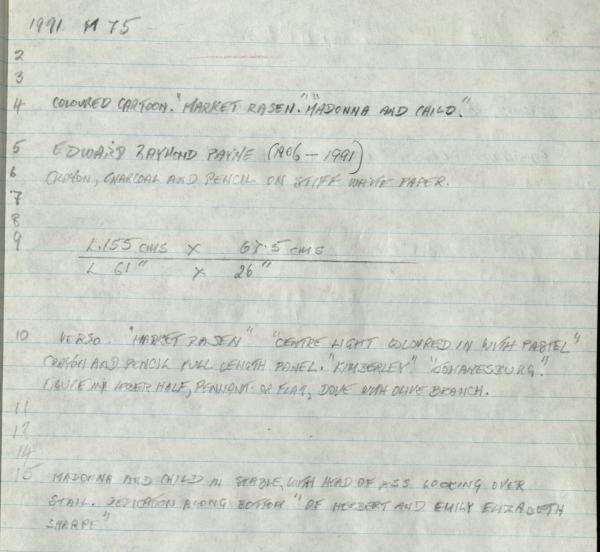 1991 M 75
2
3
4 COLOURED CARTOON. "MARKET RASEN." "MADONNA AND CHILD."
5 EDWARD RAYMOND PAYNE (1906-1991)
6 CRAYON, CHARCOAL AND PENCIL ON STIFF WHITE PAPER.
7
8
9 L.155 cms x 67.5 cms
L 61" x 26"
10 VERSO. "MARKET RASEN" "CENTRE LIGHT COLOURED IN WITH PASTEL"
CRAYON AND PENCIL FULL LENGTH PANEL. "KIMBERLEY" "JOHANESBURG."
FIGURE IN UPPER HALF, PENNANT OR FLAG, DOVE WITH OLIVE BRANCH.
11
12
14
15 MADONNA AND CHILD IN STABLE, WITH HEAD OF ASS LOOKING OVER
STALL. DEDICATION ALONG BOTTOM "OF HERBERT AND EMILY ELIZABETH
SHARPE"